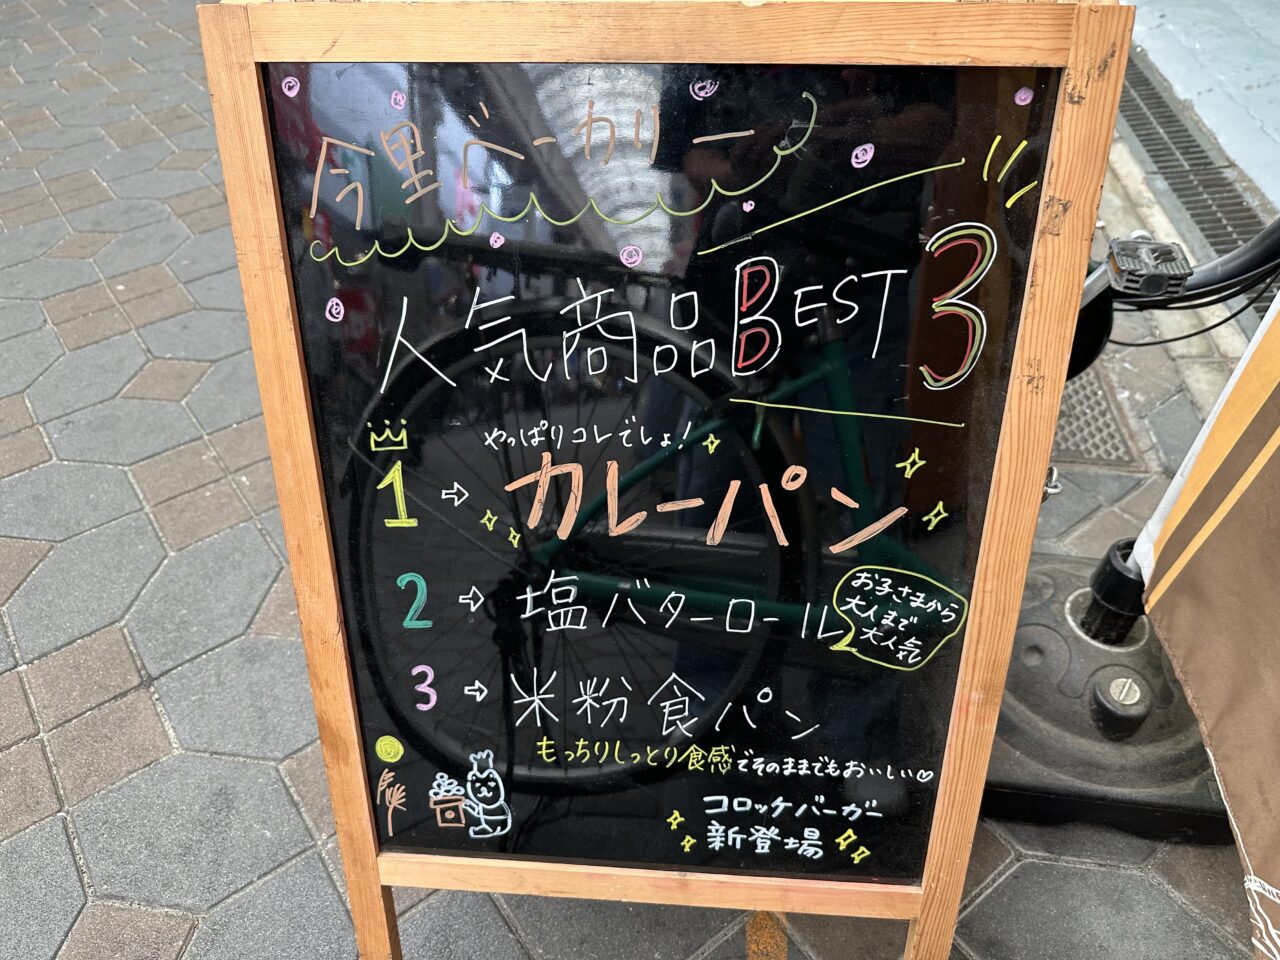 今里ベーカリー
人気商品BEST3
やっぱりコレでしょ!
1⇨カレーパン
2⇨塩バターロール
お子さまから
大人まで
大人気
3⇨米粉食パン
もっちりしっとり食感でそのままでもおいしい♡
コロッケバーガー
新登場